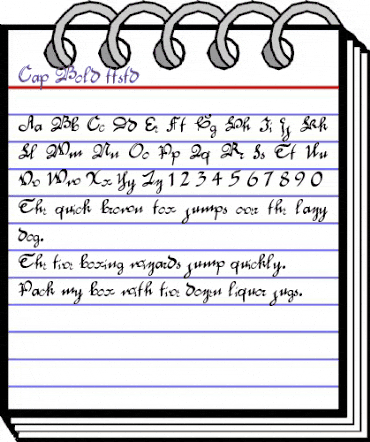 Cap Bold Hsfd
Aa Bb Cc Dd Ee Ff Gg Hh Ii Jj Kk
Ll Mm Nn Oo Pp Qq Rr Ss Tt Uu
Vv Ww Xx Yy Zz 1 2 3 4 5 6 7 8 9 0
The quick brown fox jumps over the lazy
dog.
The five boxing wizards jump quickly.
Pack my box with five dozen liquor jugs.